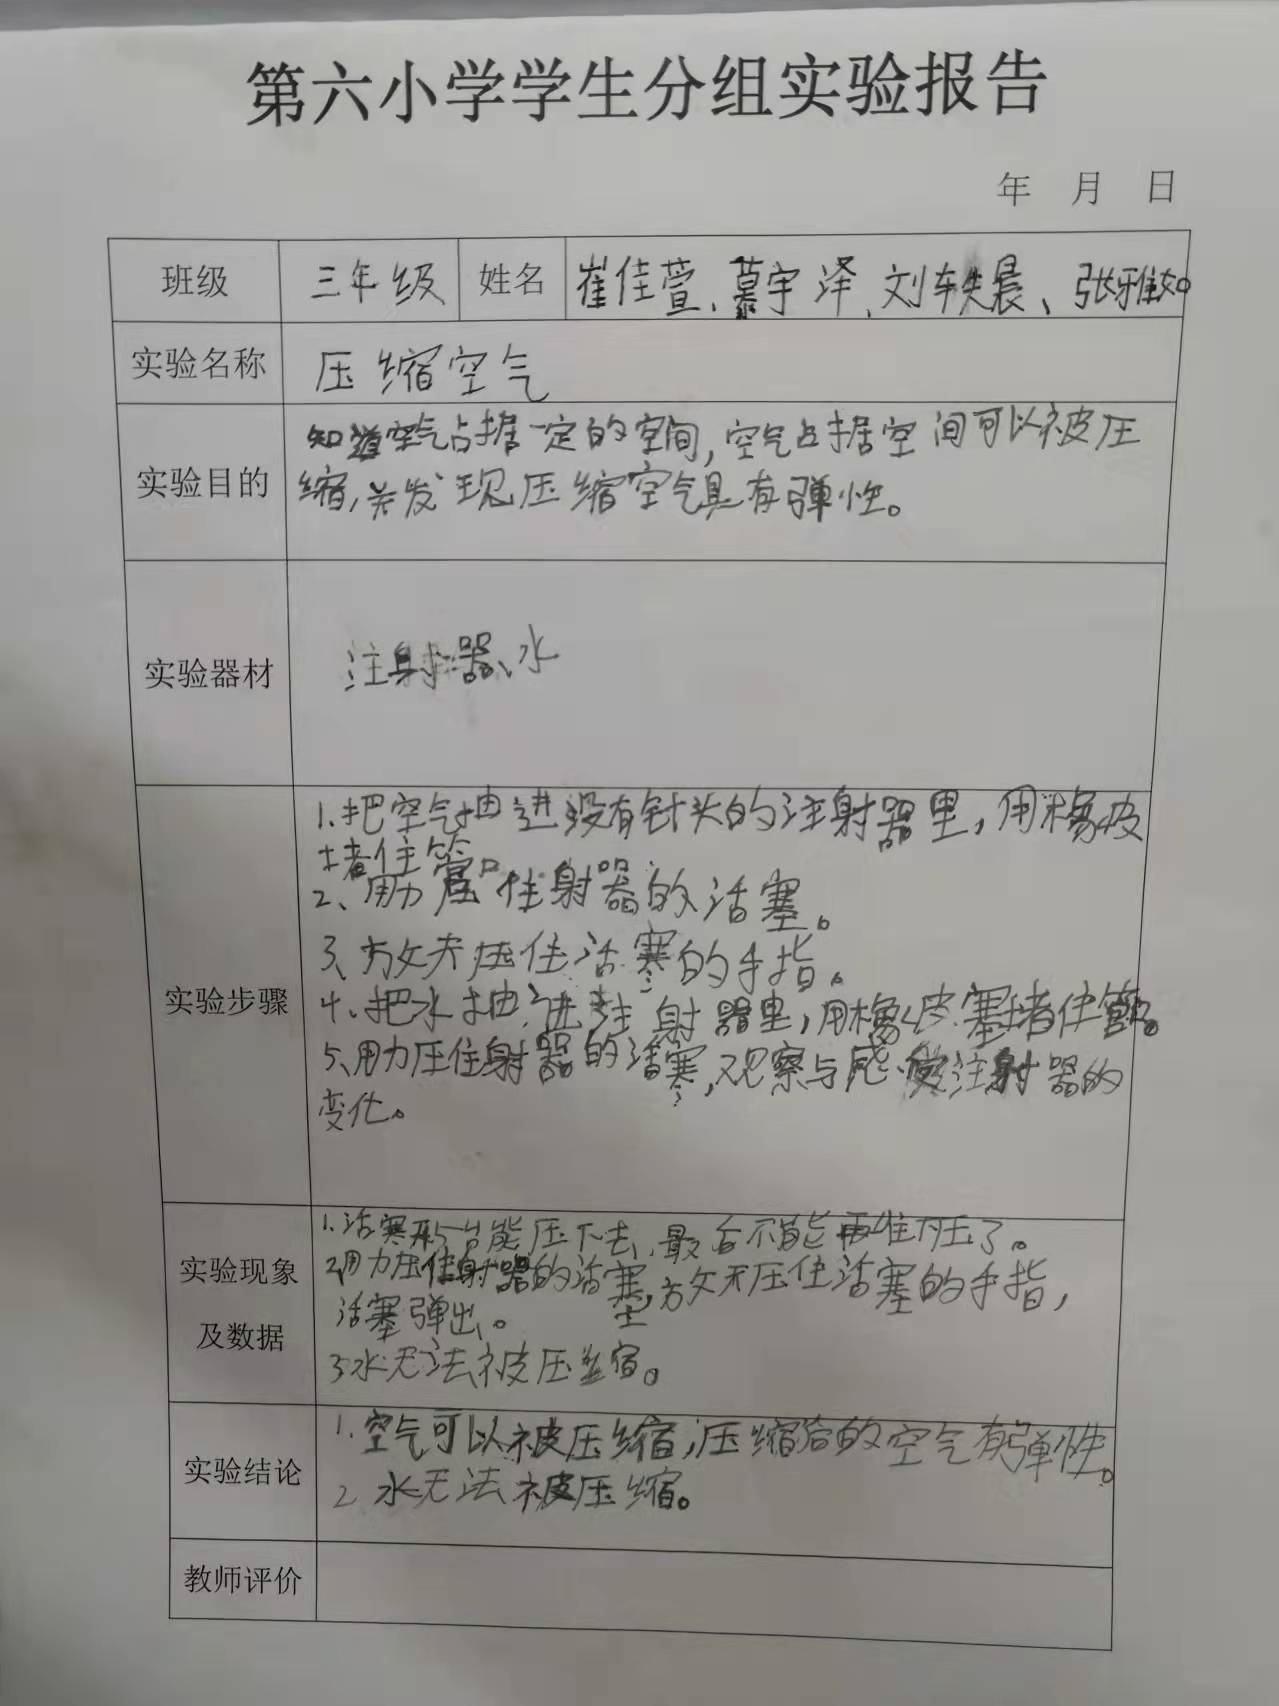 第六小学学生分组实验报告
年 月 日
班级 三年级 姓名 崔佳萱、慕宇泽、刘轶晨、张雅如
实验名称 压缩空气
实验目的
知道空气占据一定的空间,空气占据空间可以被压
缩,并发现压缩空气具有弹性。
实验器材 注射器、水
实验步骤
1.把空气抽进没有针头的注射器里,用橡皮
堵住管口
2、用力压住射器的活塞。
3、放开压住活塞的手指。
4、把水抽进注射器里,用橡皮塞堵住管口。
5、用力压住射器的活塞,观察与感受注射器的
变化。
实验现象
及数据
1.活塞开始能压下去,最后不能再往下压了。
2用力压住射器的活塞,放开压住活塞的手指,
活塞弹出。
3水无法被压缩。
实验结论
1.空气可以被压缩,压缩后的空气有弹性。
2 水无法被压缩。
教师评价